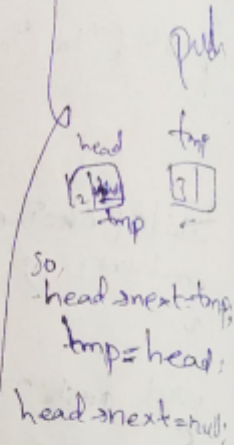 push
head tmp
2 3
tmp
so,
head→next=tmp;
tmp=head;
head→next=null;